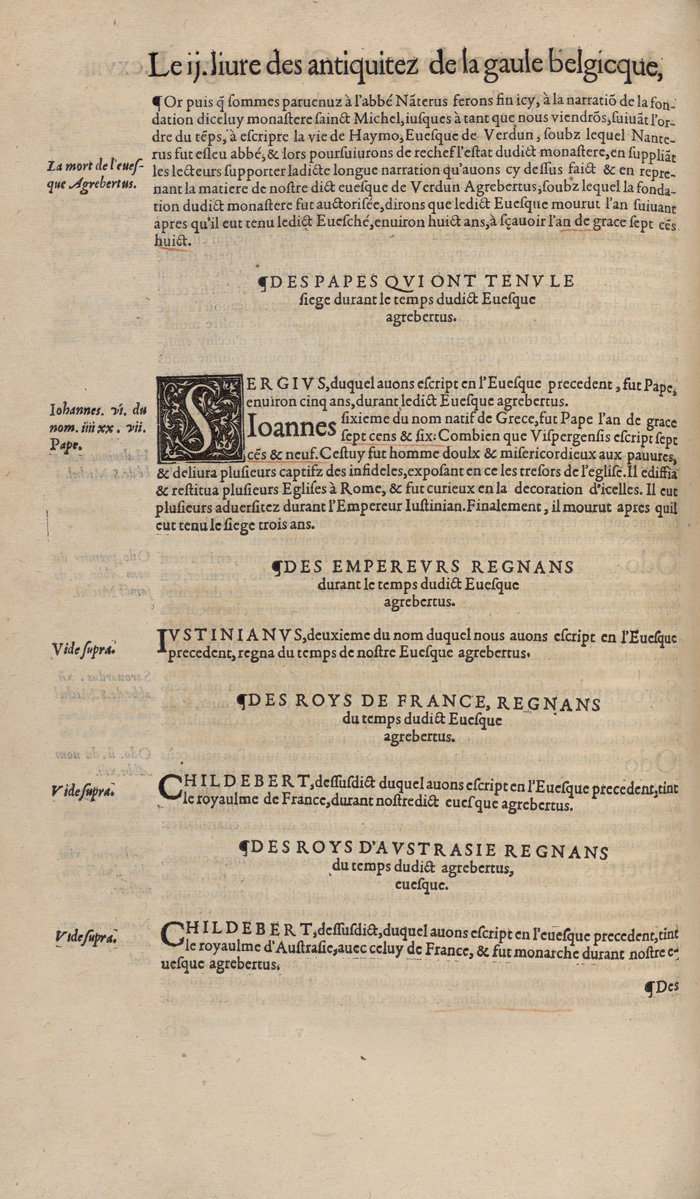 Le ij. liure des antiquitez de la gaule belgicque,
¶Or puis q̃ sommes paruenuz à l'abbé Nãterus ferons fin icy, à la narratiõ de la fon-
dation diceluy monastere sainct Michel, iusques à tant que nous viendrõs, suiuãt l'or-
dre du tẽps, à escripre la vie de Haymo, Euesque de Verdun, soubz lequel Nante-
rus fut esleu abbé, & lors poursuiurons de rechef l'estat dudict monastere, en suppliãt
La mort de l'eues-
que Agrebertus.
les lecteurs supporter ladicte longue narration qu'auons cy dessus faict & en repre-
nant la matiere de nostre dict euesque de Verdun Agrebertus, soubz lequel la fonda-
tion dudict monastere fut auctorisée, dirons que ledict Euesque mourut l'an suiuant
apres qu'il eut tenu ledict Euesché, enuiron huict ans, à sçauoir l'an de grace sept cẽs
huict.
¶DES PAPES QVI ONT TENV LE
siege durant le temps dudict Euesque
agrebertus.
SERGIVS, duquel auons escript en l'Euesque precedent, fut Pape,
enuiron cinq ans, durant ledict Euesque agrebertus.
Iohannes. vi. du
nom. iiii xx. vii.
Pape.
Ioannes sixieme du nom natif de Grece, fut Pape l'an de grace
sept cens & six: Combien que Vispergensis escript sept
cẽs & neuf. Cestuy fut homme doulx & misericordieux aux pauures,
& deliura plusieurs captifz des infideles, exposant en ce les tresors de l'eglise. Il ediffia
& restitua plusieurs Eglises à Rome, & fut curieux en la decoration d'icelles. Il eut
plusieurs aduersitez durant l'Empereur Iustinian. Finalement, il mourut apres quil
eut tenu le siege trois ans.
¶DES EMPEREVRS REGNANS
durant le temps dudict Euesque
agrebertus.
Vide supra.
IVSTINIANVS, deuxieme du nom duquel nous auons escript en l'Euesque
precedent, regna du temps de nostre Euesque agrebertus.
¶DES ROYS DE FRANCE, REGNANS
du temps dudict Euesque
agrebertus.
Vide supra.
CHILDEBERT, dessusdict duquel auons escript en l'Euesque precedent, tint
le royaulme de France, durant nostredict euesque agrebertus.
¶DES ROYS D'AVSTRASIE REGNANS
du temps dudict agrebertus,
euesque.
Vide supra.
CHILDEBERT, dessusdict, duquel auons escript en l'euesque precedent, tint
le royaulme d'Austrasie, auec celuy de France, & fut monarche durant nostre e-
uesque agrebertus.
¶Des